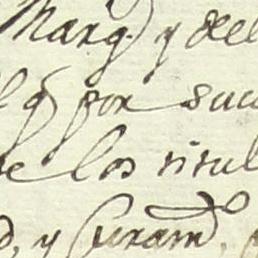 Marq. y del
q por suc
de los titul
y Curam.